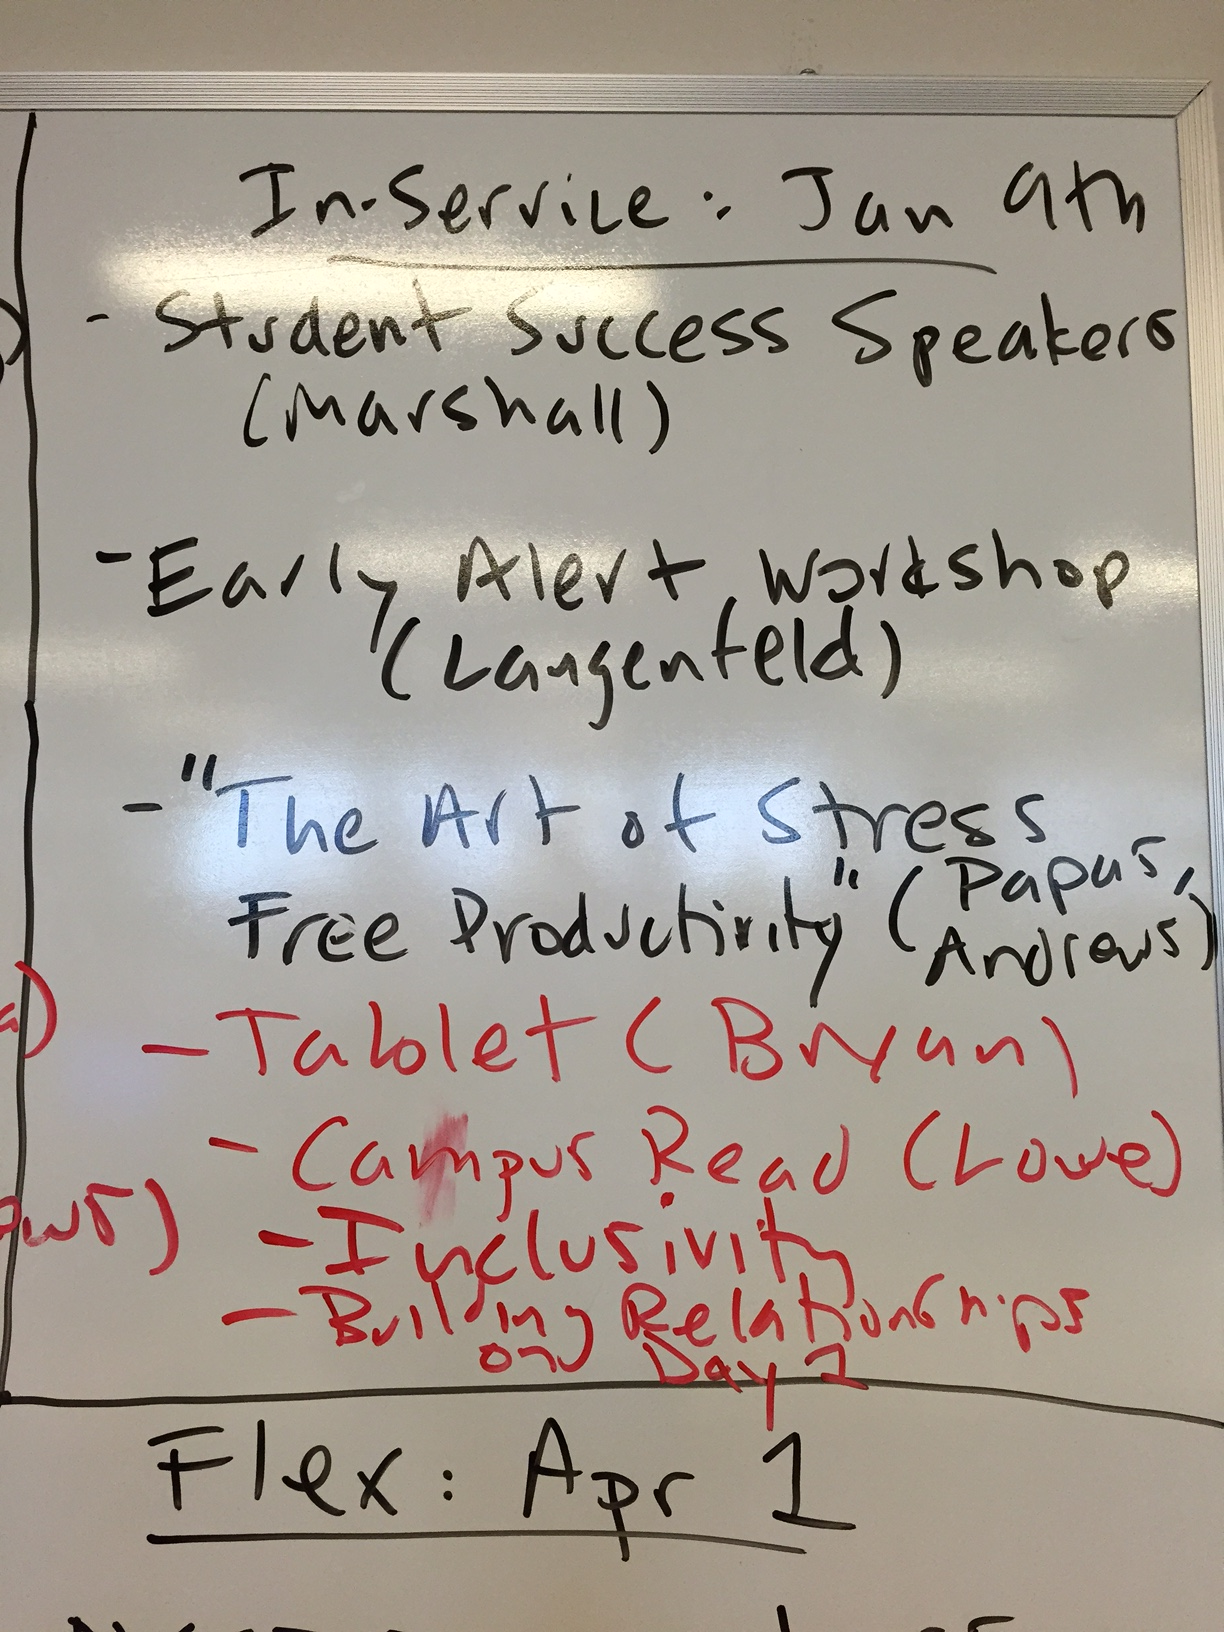 In-Service: Jan 9th
- Student Success Speakers
(Marshall)
- Early Alert Workshop
(Langenfeld)
- "The Art of Stress
Free Productivity" (Papus,
Andrews)
- Tablet (Bryan)
- Campus Read (Lowe)
- Inclusivity
- Building Relationships
on Day 1
Flex: Apr 1